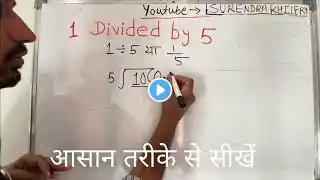 Youtube → SURENDRA KHILERY
1 Divided by 5
1 ÷ 5 या 1/5
5 √10 ( 0.
आसान तरीके से सीखें